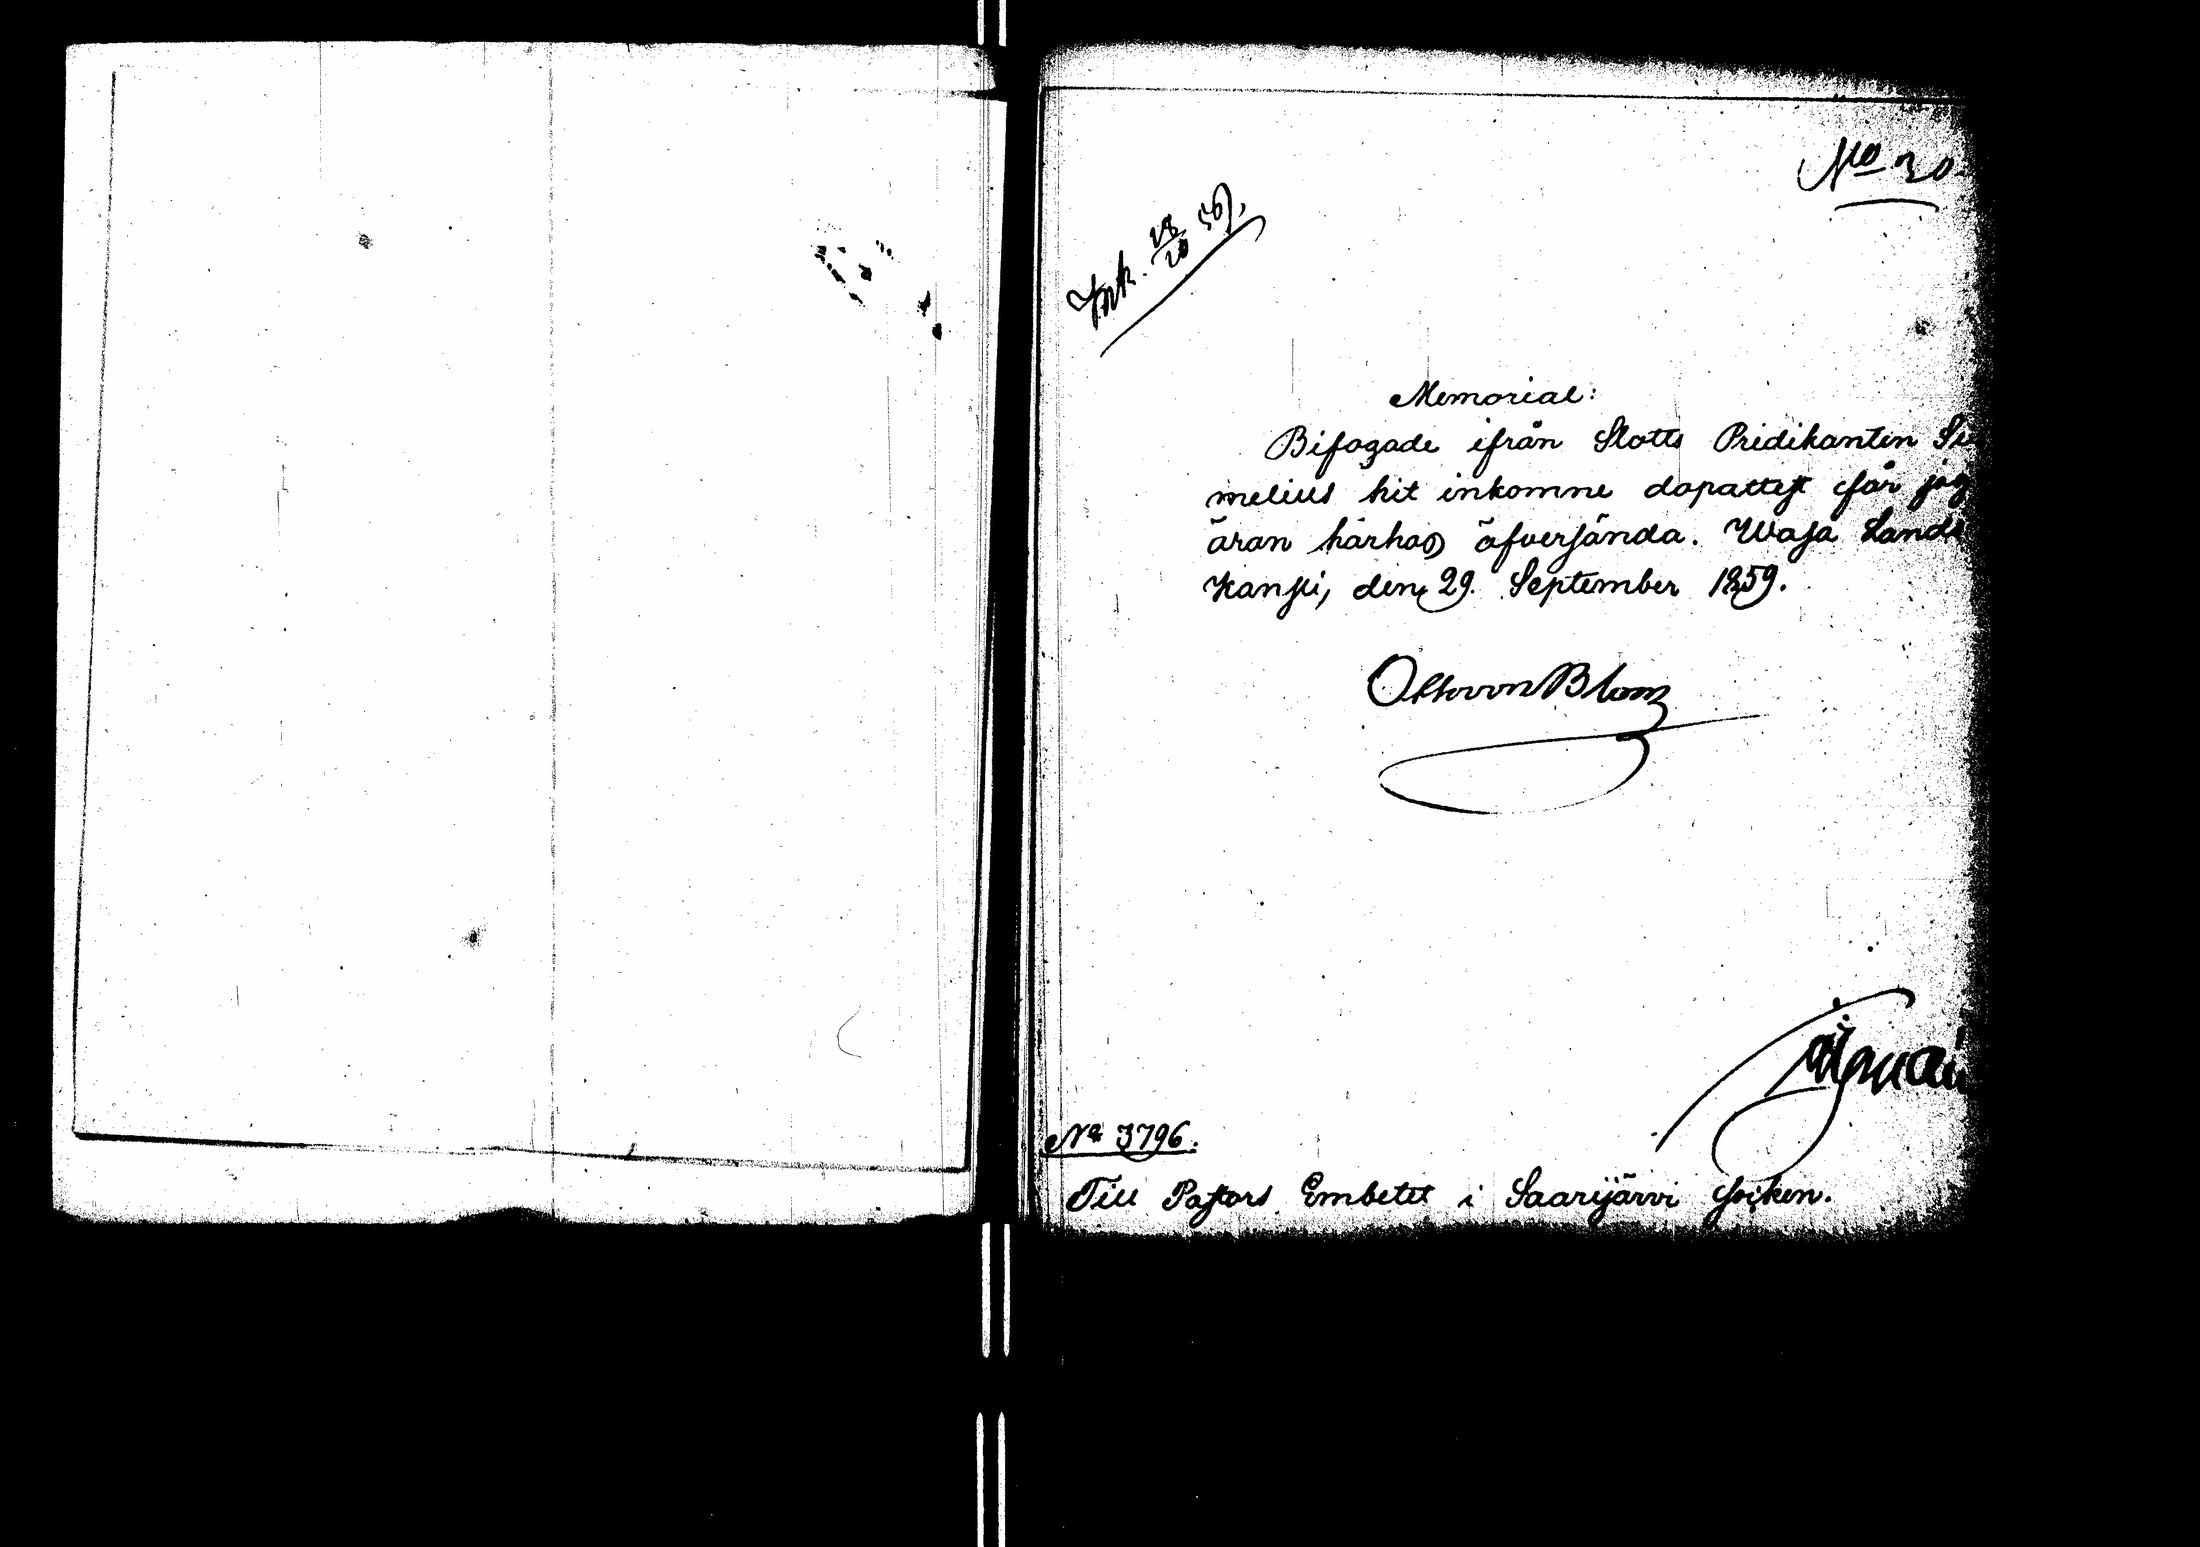 No 30.
Ink. 59.
Memorial:
Bifogade ifrån Slotts Predikanten
melius hit inkomne dopattest får jag
äran härhos öfversända. Wasa Lands
Kansli, den 29. September 1859.
Otto von Blom
No 3796.
Till Pastors Embetet i Saarijärvi socken.